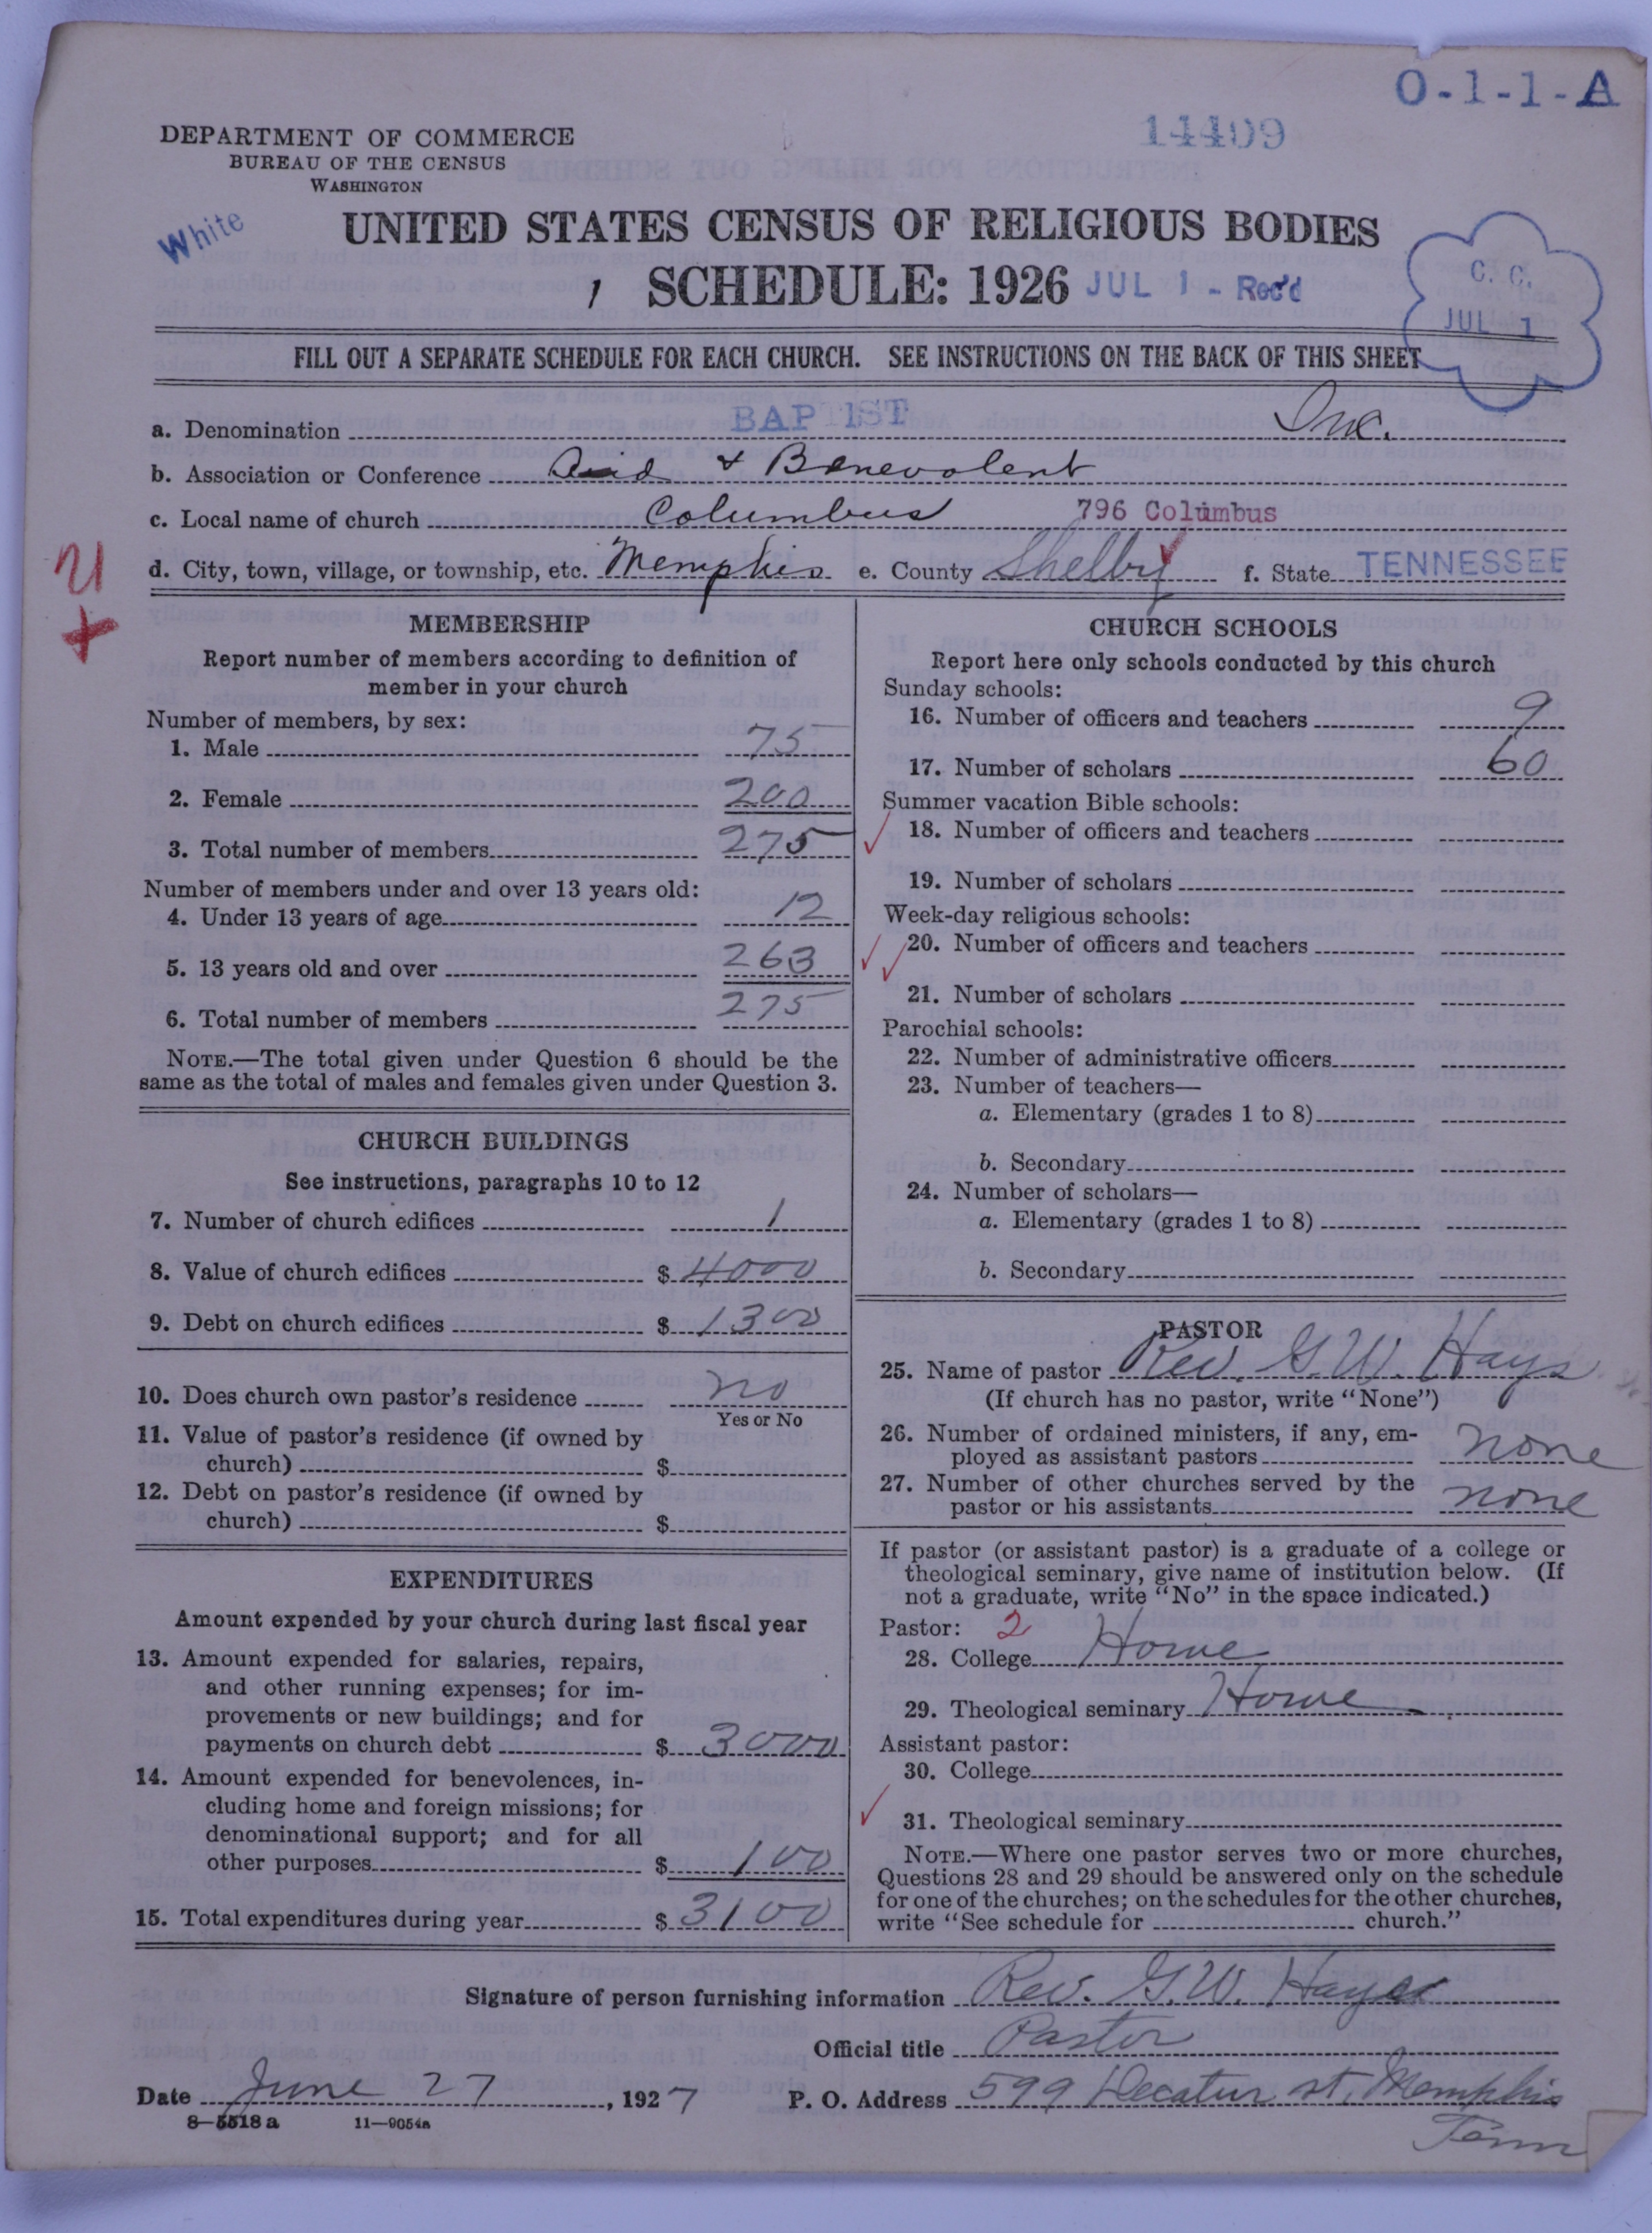 O-1-1-A
14409
DEPARTMENT OF COMMERCE
BUREAU OF THE CENSUS
WASHINGTON
White
UNITED STATES CENSUS OF RELIGIOUS BODIES
1 SCHEDULE: 1926 JUL 1 - Rec'd
C. C.
JUL 1
FILL OUT A SEPARATE SCHEDULE FOR EACH CHURCH. SEE INSTRUCTIONS ON THE BACK OF THIS SHEET
a. Denomination BAPTIST Inc.
b. Association or Conference & Benevolent
c. Local name of church Columbus 796 Columbus
d. City, town, village, or township, etc. Memphis e. County Shelby f. State TENNESSEE
MEMBERSHIP
Report number of members according to definition of
member in your church
Number of members, by sex:
1. Male 75
2. Female 200
3. Total number of members 275
Number of members under and over 13 years old:
4. Under 13 years of age 12
5. 13 years old and over 263
6. Total number of members 275
NOTE.—The total given under Question 6 should be the
same as the total of males and females given under Question 3.
CHURCH BUILDINGS
See instructions, paragraphs 10 to 12
7. Number of church edifices 1
8. Value of church edifices $ 4000
9. Debt on church edifices $ 1300
10. Does church own pastor's residence no
Yes or No
11. Value of pastor's residence (if owned by
church) $
12. Debt on pastor's residence (if owned by
church) $
EXPENDITURES
Amount expended by your church during last fiscal year
13. Amount expended for salaries, repairs,
and other running expenses; for im-
provements or new buildings; and for
payments on church debt $ 3000
14. Amount expended for benevolences, in-
cluding home and foreign missions; for
denominational support; and for all
other purposes $ 100
15. Total expenditures during year $ 3100
CHURCH SCHOOLS
Report here only schools conducted by this church
Sunday schools:
16. Number of officers and teachers 9
17. Number of scholars 60
Summer vacation Bible schools:
18. Number of officers and teachers
19. Number of scholars
Week-day religious schools:
20. Number of officers and teachers
21. Number of scholars
Parochial schools:
22. Number of administrative officers
23. Number of teachers—
a. Elementary (grades 1 to 8)
b. Secondary
24. Number of scholars—
a. Elementary (grades 1 to 8)
b. Secondary
PASTOR
25. Name of pastor Rev. G. W. Hays
(If church has no pastor, write "None")
26. Number of ordained ministers, if any, em-
ployed as assistant pastors none
27. Number of other churches served by the
pastor or his assistants none
If pastor (or assistant pastor) is a graduate of a college or
theological seminary, give name of institution below. (If
not a graduate, write "No" in the space indicated.)
Pastor: 2
28. College Howe
29. Theological seminary Howe
Assistant pastor:
30. College
31. Theological seminary
NOTE.—Where one pastor serves two or more churches,
Questions 28 and 29 should be answered only on the schedule
for one of the churches; on the schedules for the other churches,
write "See schedule for church."
Signature of person furnishing information Rev. G. W. Hayes
Official title Pastor
Date June 27, 1927 P. O. Address 599 Decatur st. Memphis
Tenn
8—5518 a 11—9054a